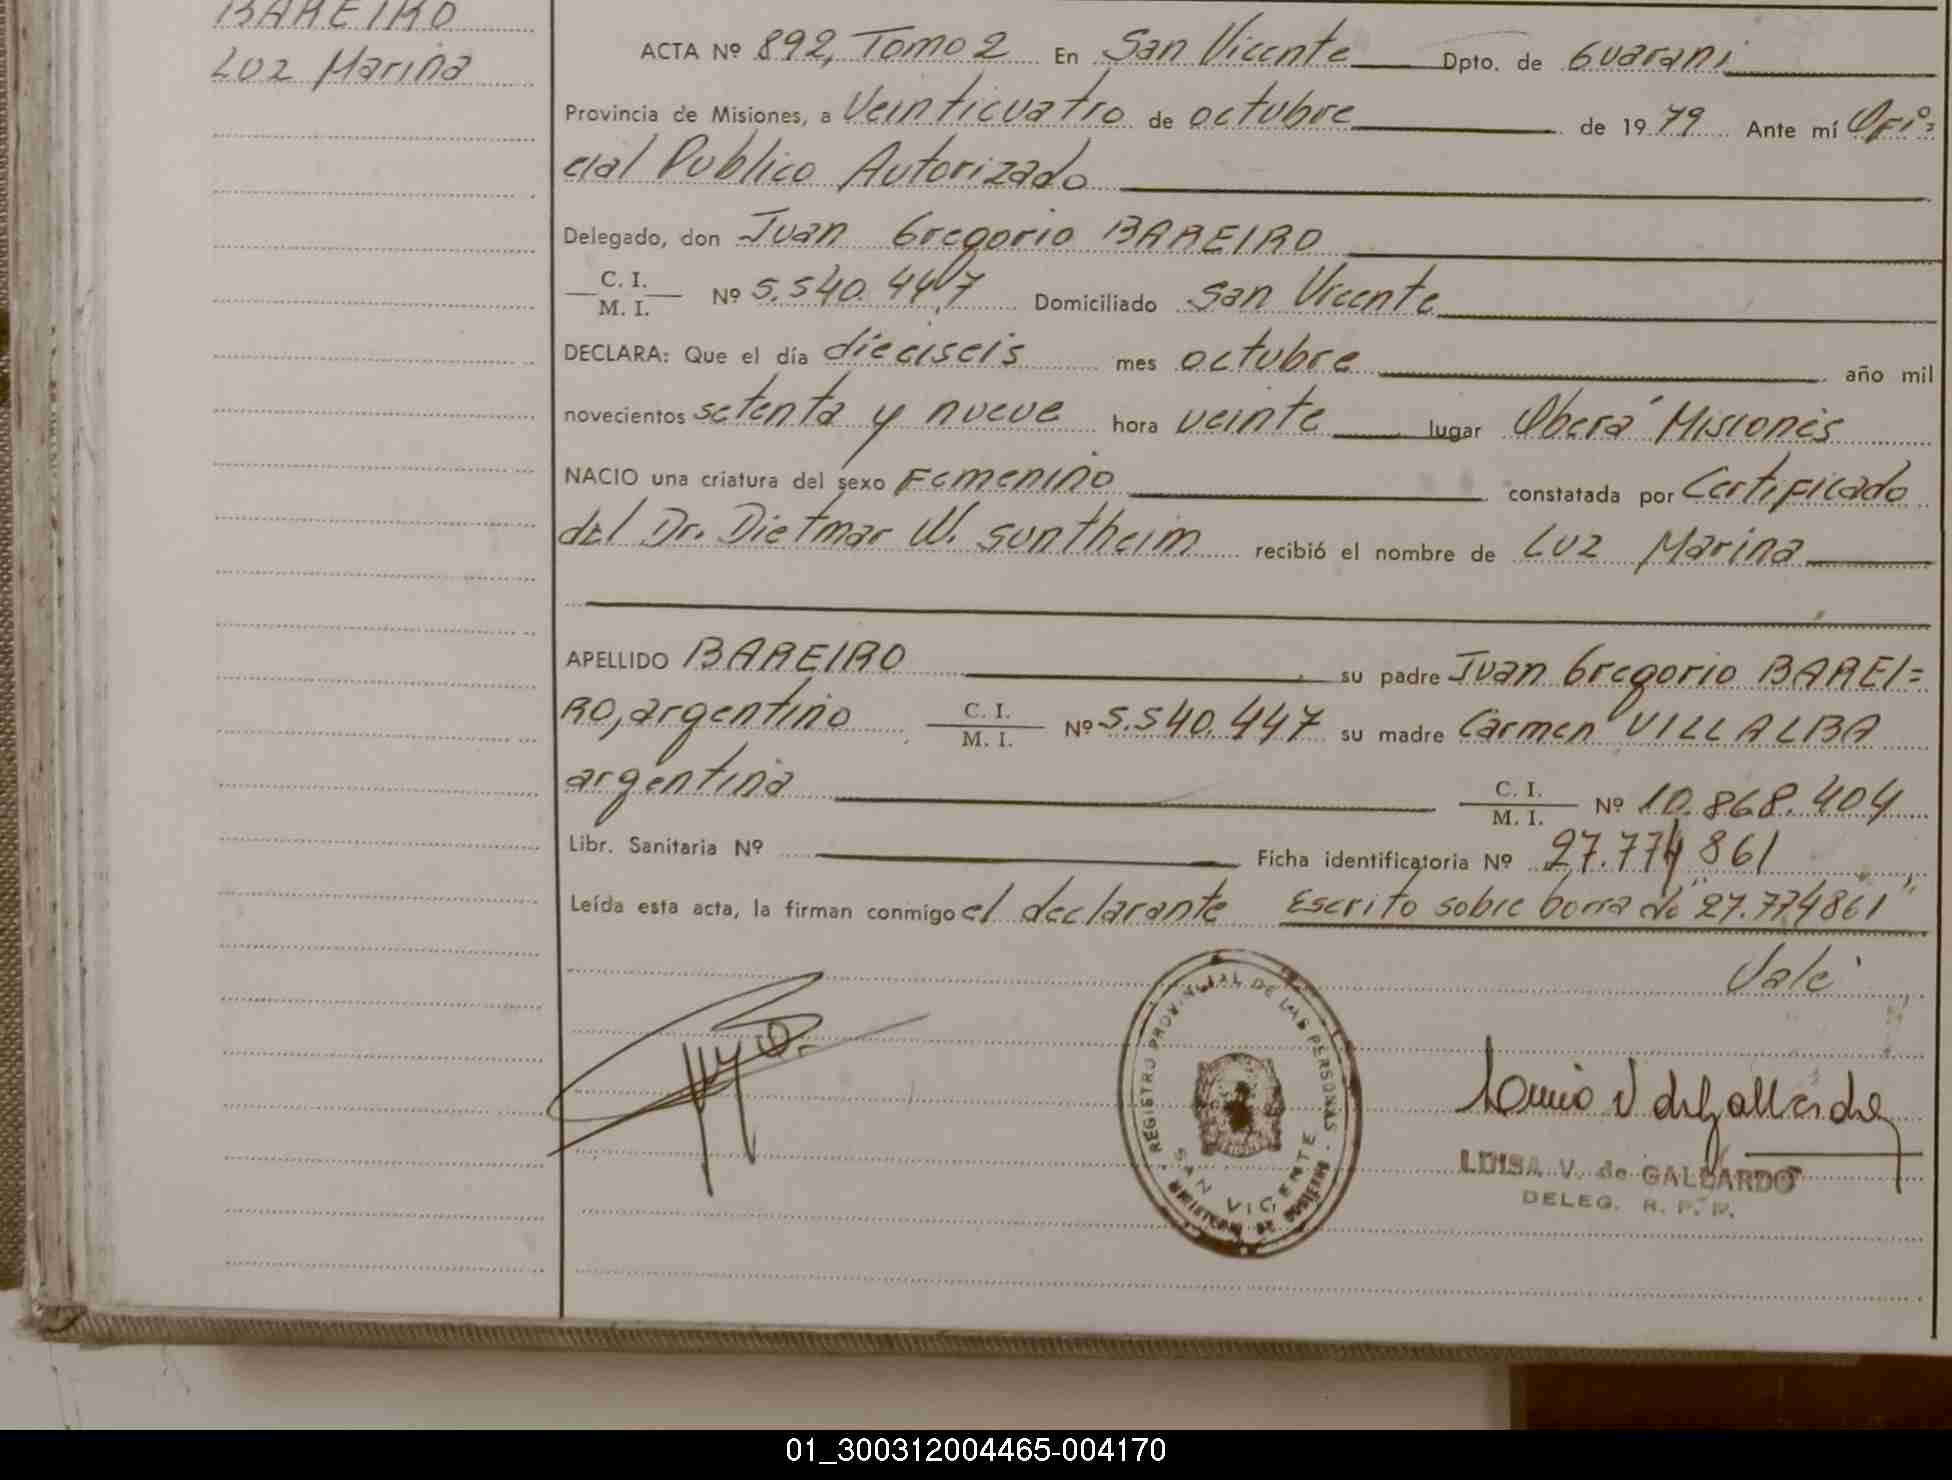 BAREIRO
Luz Marina
ACTA Nº 892, Tomo 2 En San Vicente Dpto. de Guarani
Provincia de Misiones, a Veinticuatro de octubre de 1979 Ante mí Ofi=
cial Publico Autorizado
Delegado, don Juan Gregorio BAREIRO
C. I.
M. I. Nº 5.540.447 Domiciliado San Vicente
DECLARA: Que el día dieciseis mes octubre año mil
novecientos setenta y nueve hora veinte lugar Oberá Misiones
NACIO una criatura del sexo Femenino constatada por Certificado
del Dr. Dietmar W. Suntheim recibió el nombre de Luz Marina
APELLIDO BAREIRO su padre Juan Gregorio BAREI=
RO, argentino C. I.
M. I. Nº 5.540.447 su madre Carmen VILLALBA
argentina C. I.
M. I. Nº 10.868.404
Libr. Sanitaria Nº Ficha identificatoria Nº 27.774861
Leída esta acta, la firman conmigo el declarante Escrito sobre borrado "27.774861"
Vale
REGISTRO PROVINCIAL DE LAS PERSONAS
SAN VICENTE
MINISTERIO DE GOBIERNO
LUISA V. de GALLARDO
DELEG. R. P. P.
01_300312004465-004170